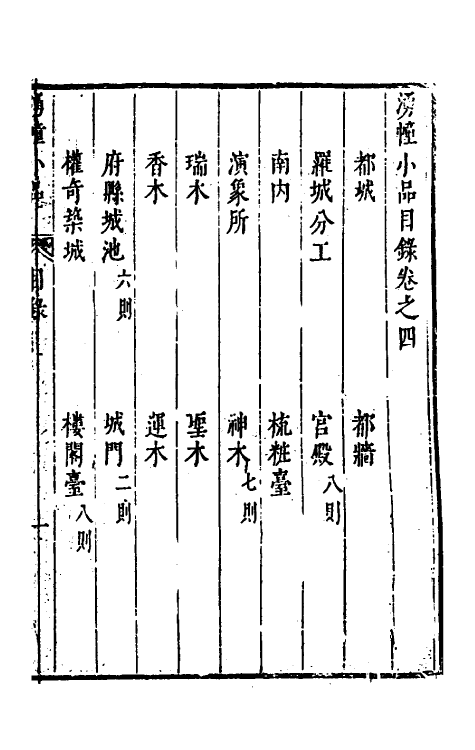 湧幢小品目錄卷之四
都城 都牆
羅城分工 宮殿八則
南内 梳粧臺
演象所 神木七則
瑞木 聖木
香木 運木
府縣城池六則 城門二則
權奇築城 樓閣臺八則
湧幢小品 目錄 一